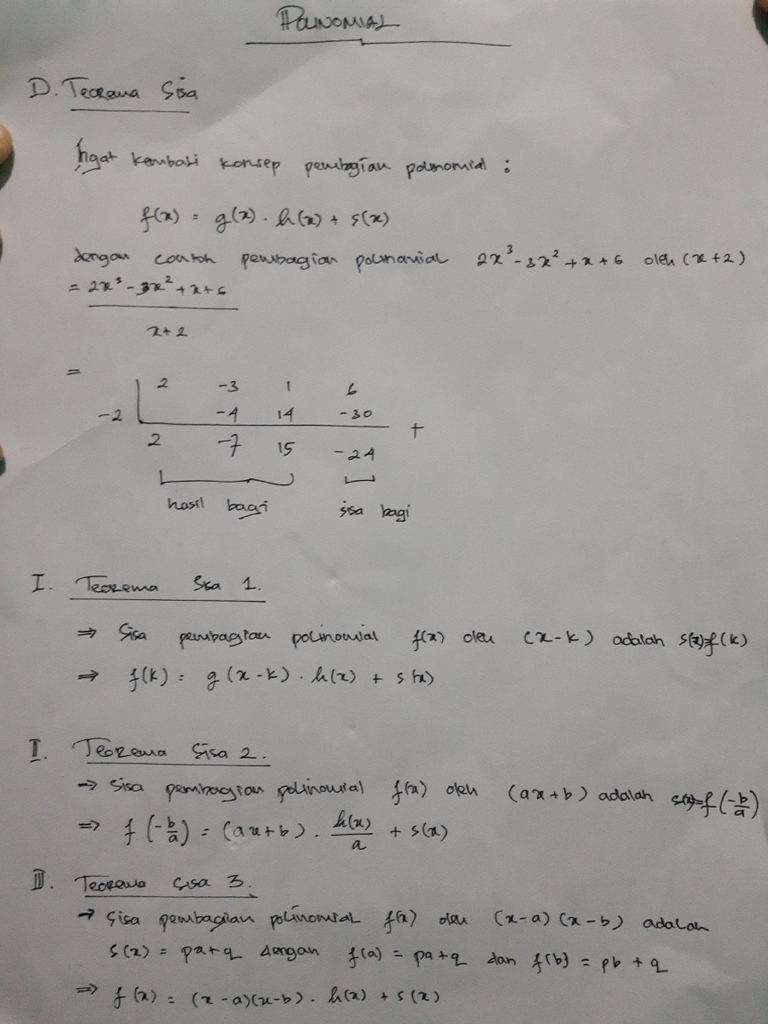 POLINOMIAL
D. Teorema Sisa
Ingat kembali konsep pembagian polinomial :
f(x) = g(x) . h(x) + s(x)
dengan contoh pembagian polinomial 2x³ - 3x² + x + 6 oleh (x+2)
= 2x³ - 3x² + x + 6
x + 2
=
2 -3 1 6
-2 -4 14 -30 +
2 -7 15 -24
hasil bagi sisa bagi
I. Teorema Sisa 1.
⇒ Sisa pembagian polinomial f(x) oleh (x-k) adalah s(x)=f(k)
⇒ f(k) = g(x-k) . h(x) + s(x)
II. Teorema Sisa 2.
⇒ Sisa pembagian polinomial f(x) oleh (ax+b) adalah s(x)=f(-b/a)
⇒ f(-b/a) = (ax+b) . h(x)/a + s(x)
III. Teorema Sisa 3.
→ Sisa pembagian polinomial f(x) oleh (x-a)(x-b) adalah
s(x) = pa+q dengan f(a) = pa+q dan f(b) = pb + q
⇒ f(x) = (x-a)(x-b) . h(x) + s(x)